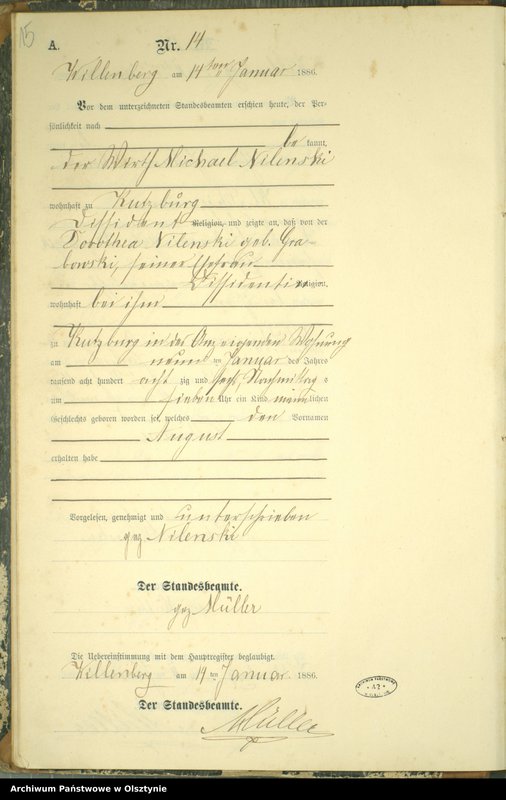 15
A.
Nr. 14
Willenberg am 14ten Januar 1886.
Vor dem unterzeichneten Standesbeamten erschien heute, der Per-
sönlichkeit nach
be kannt,
der Wirth Michael Nilenski
wohnhaft zu Kutzburg
Dissident Religion, und zeigte an, daß von der
Dorothea Nilenski geb. Gra-
bowski, seiner Ehefrau
Dissidentin Religion,
wohnhaft bei ihm
zu Kutzburg in des Anzeigenden Wohnung
am neunten Januar des Jahres
tausend acht hundert acht zig und sechs Nachmittag s
um sieben Uhr ein Kind männlichen
Geschlechts geboren worden sei, welches den Vornamen
August
erhalten habe
Vorgelesen, genehmigt und unterschrieben
gez Nilenski
Der Standesbeamte.
gez Müller
Die Uebereinstimmung mit dem Hauptregister beglaubigt.
Willenberg am 14ten Januar 1886.
Der Standesbeamte.
Müller
Archiwum Państwowe w Olsztynie